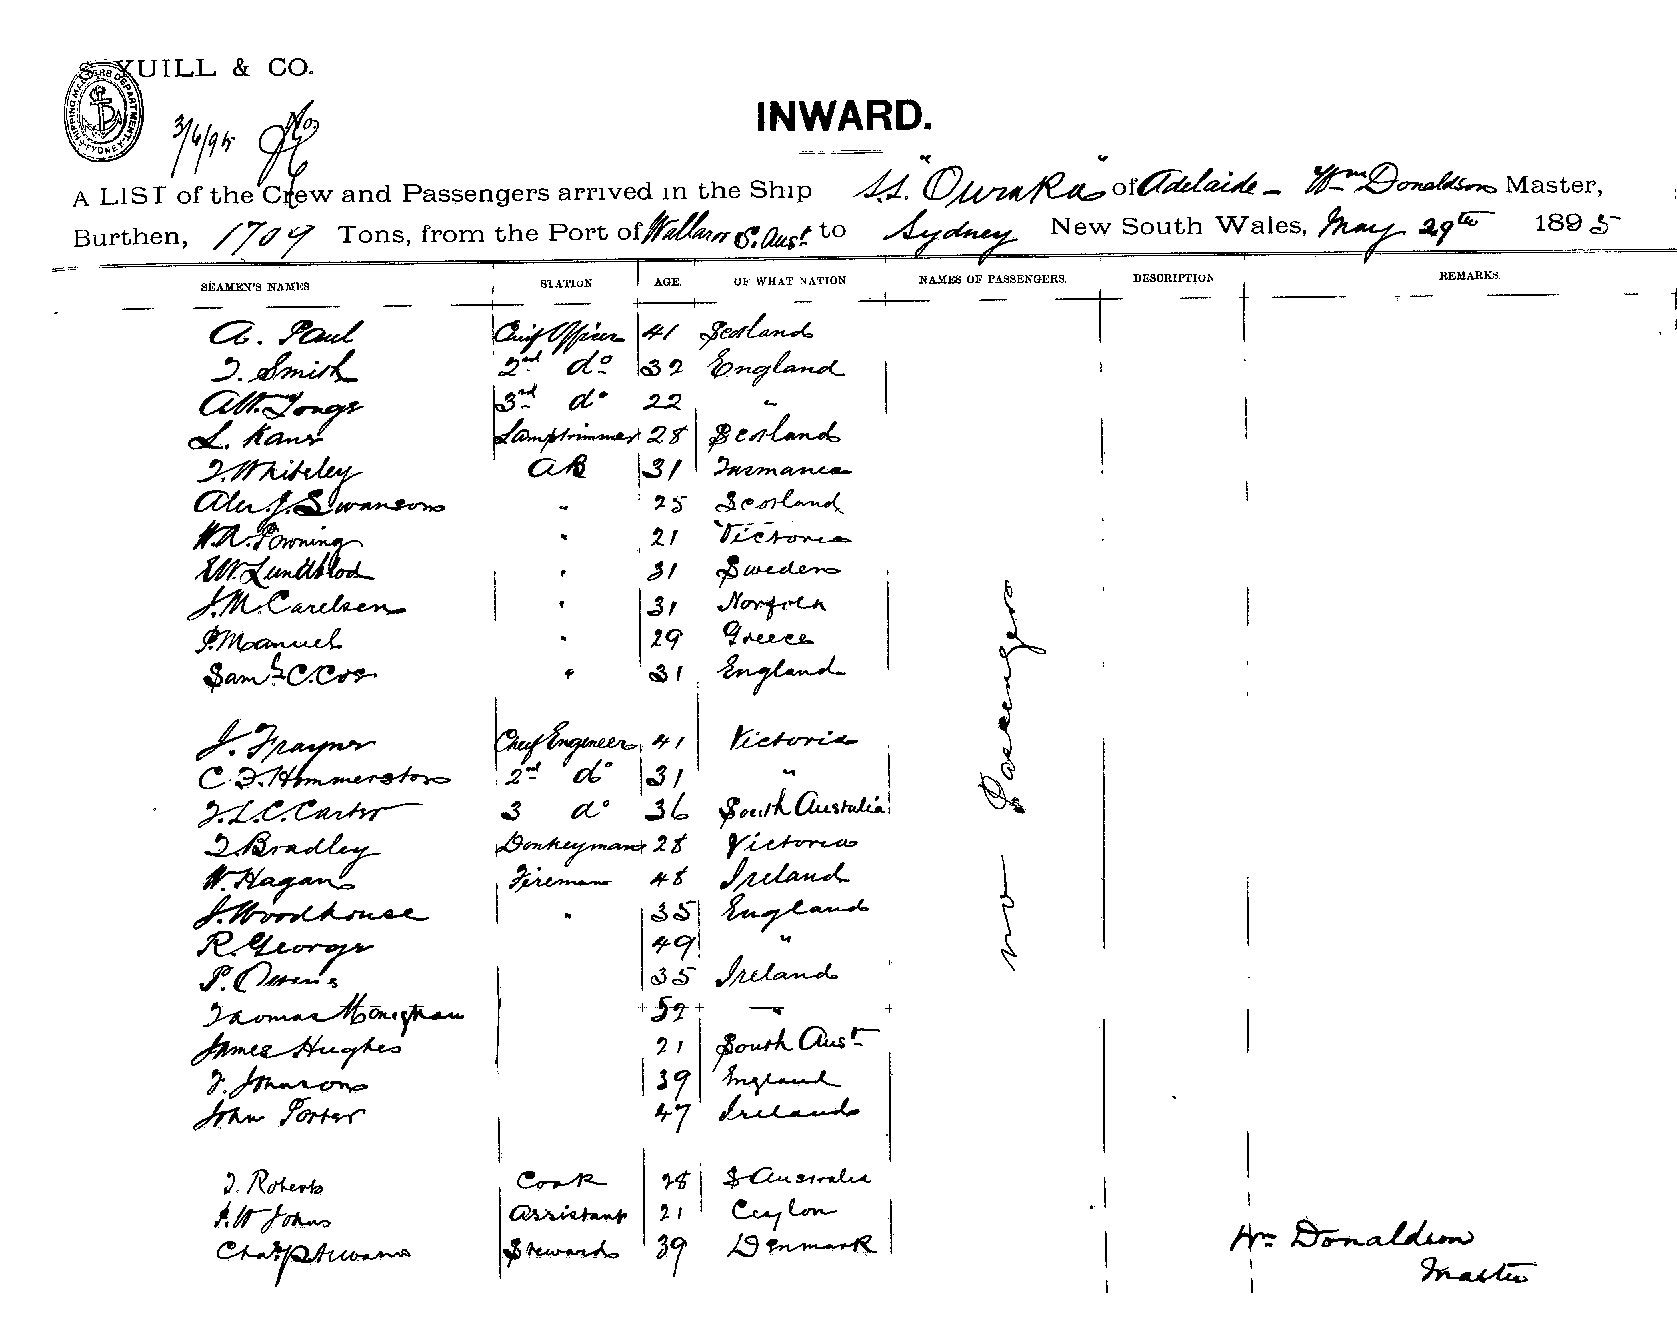 YUILL & CO.
3/6/95
INWARD.
A LIST of the Crew and Passengers arrived in the Ship S.S. "Ouraka" of Adelaide - Wm Donaldson Master,
Burthen, 1709 Tons, from the Port of Wallaroo S. Aust to Sydney New South Wales, May 29th 1895
SEAMEN'S NAMES STATION AGE. OF WHAT NATION NAMES OF PASSENGERS. DESCRIPTION REMARKS.
A. Paul Chief Officer 41 Scotland
T. Smith 2nd do 32 England
3rd do 22 "
L. Lamptrimmer 28 Scotland
T. Whiteley AB 31 Tasmania
Alex. J. Swanson " 25 Scotland
W.A. Powning " 21 Victoria
E.W. Lundblod " 31 Sweden
J.M. Carelsen " 31 Norfolk
P. Manuel " 29 Greece
Saml. C. Cox " 31 England
No Passengers
J. Frayne Chief Engineer 41 Victoria
C.F. Hammerston 2nd do 31 "
T.L.C. Carter 3 do 36 South Australia
T. Bradley Donkeyman 28 Victoria
W. Hagan Fireman 48 Ireland
J. Woodhouse " 35 England
R. George 49 "
P. Owens 35 Ireland
Thomas Monighan 52 "
James Hughes 21 South Aust
T. Johnson 39 England
John Porter 47 Ireland
T. Roberts Cook 28 S Australia
W Johns Assistant 21 Ceylon
Chas Steward 39 Denmark
Wm Donaldson
Master